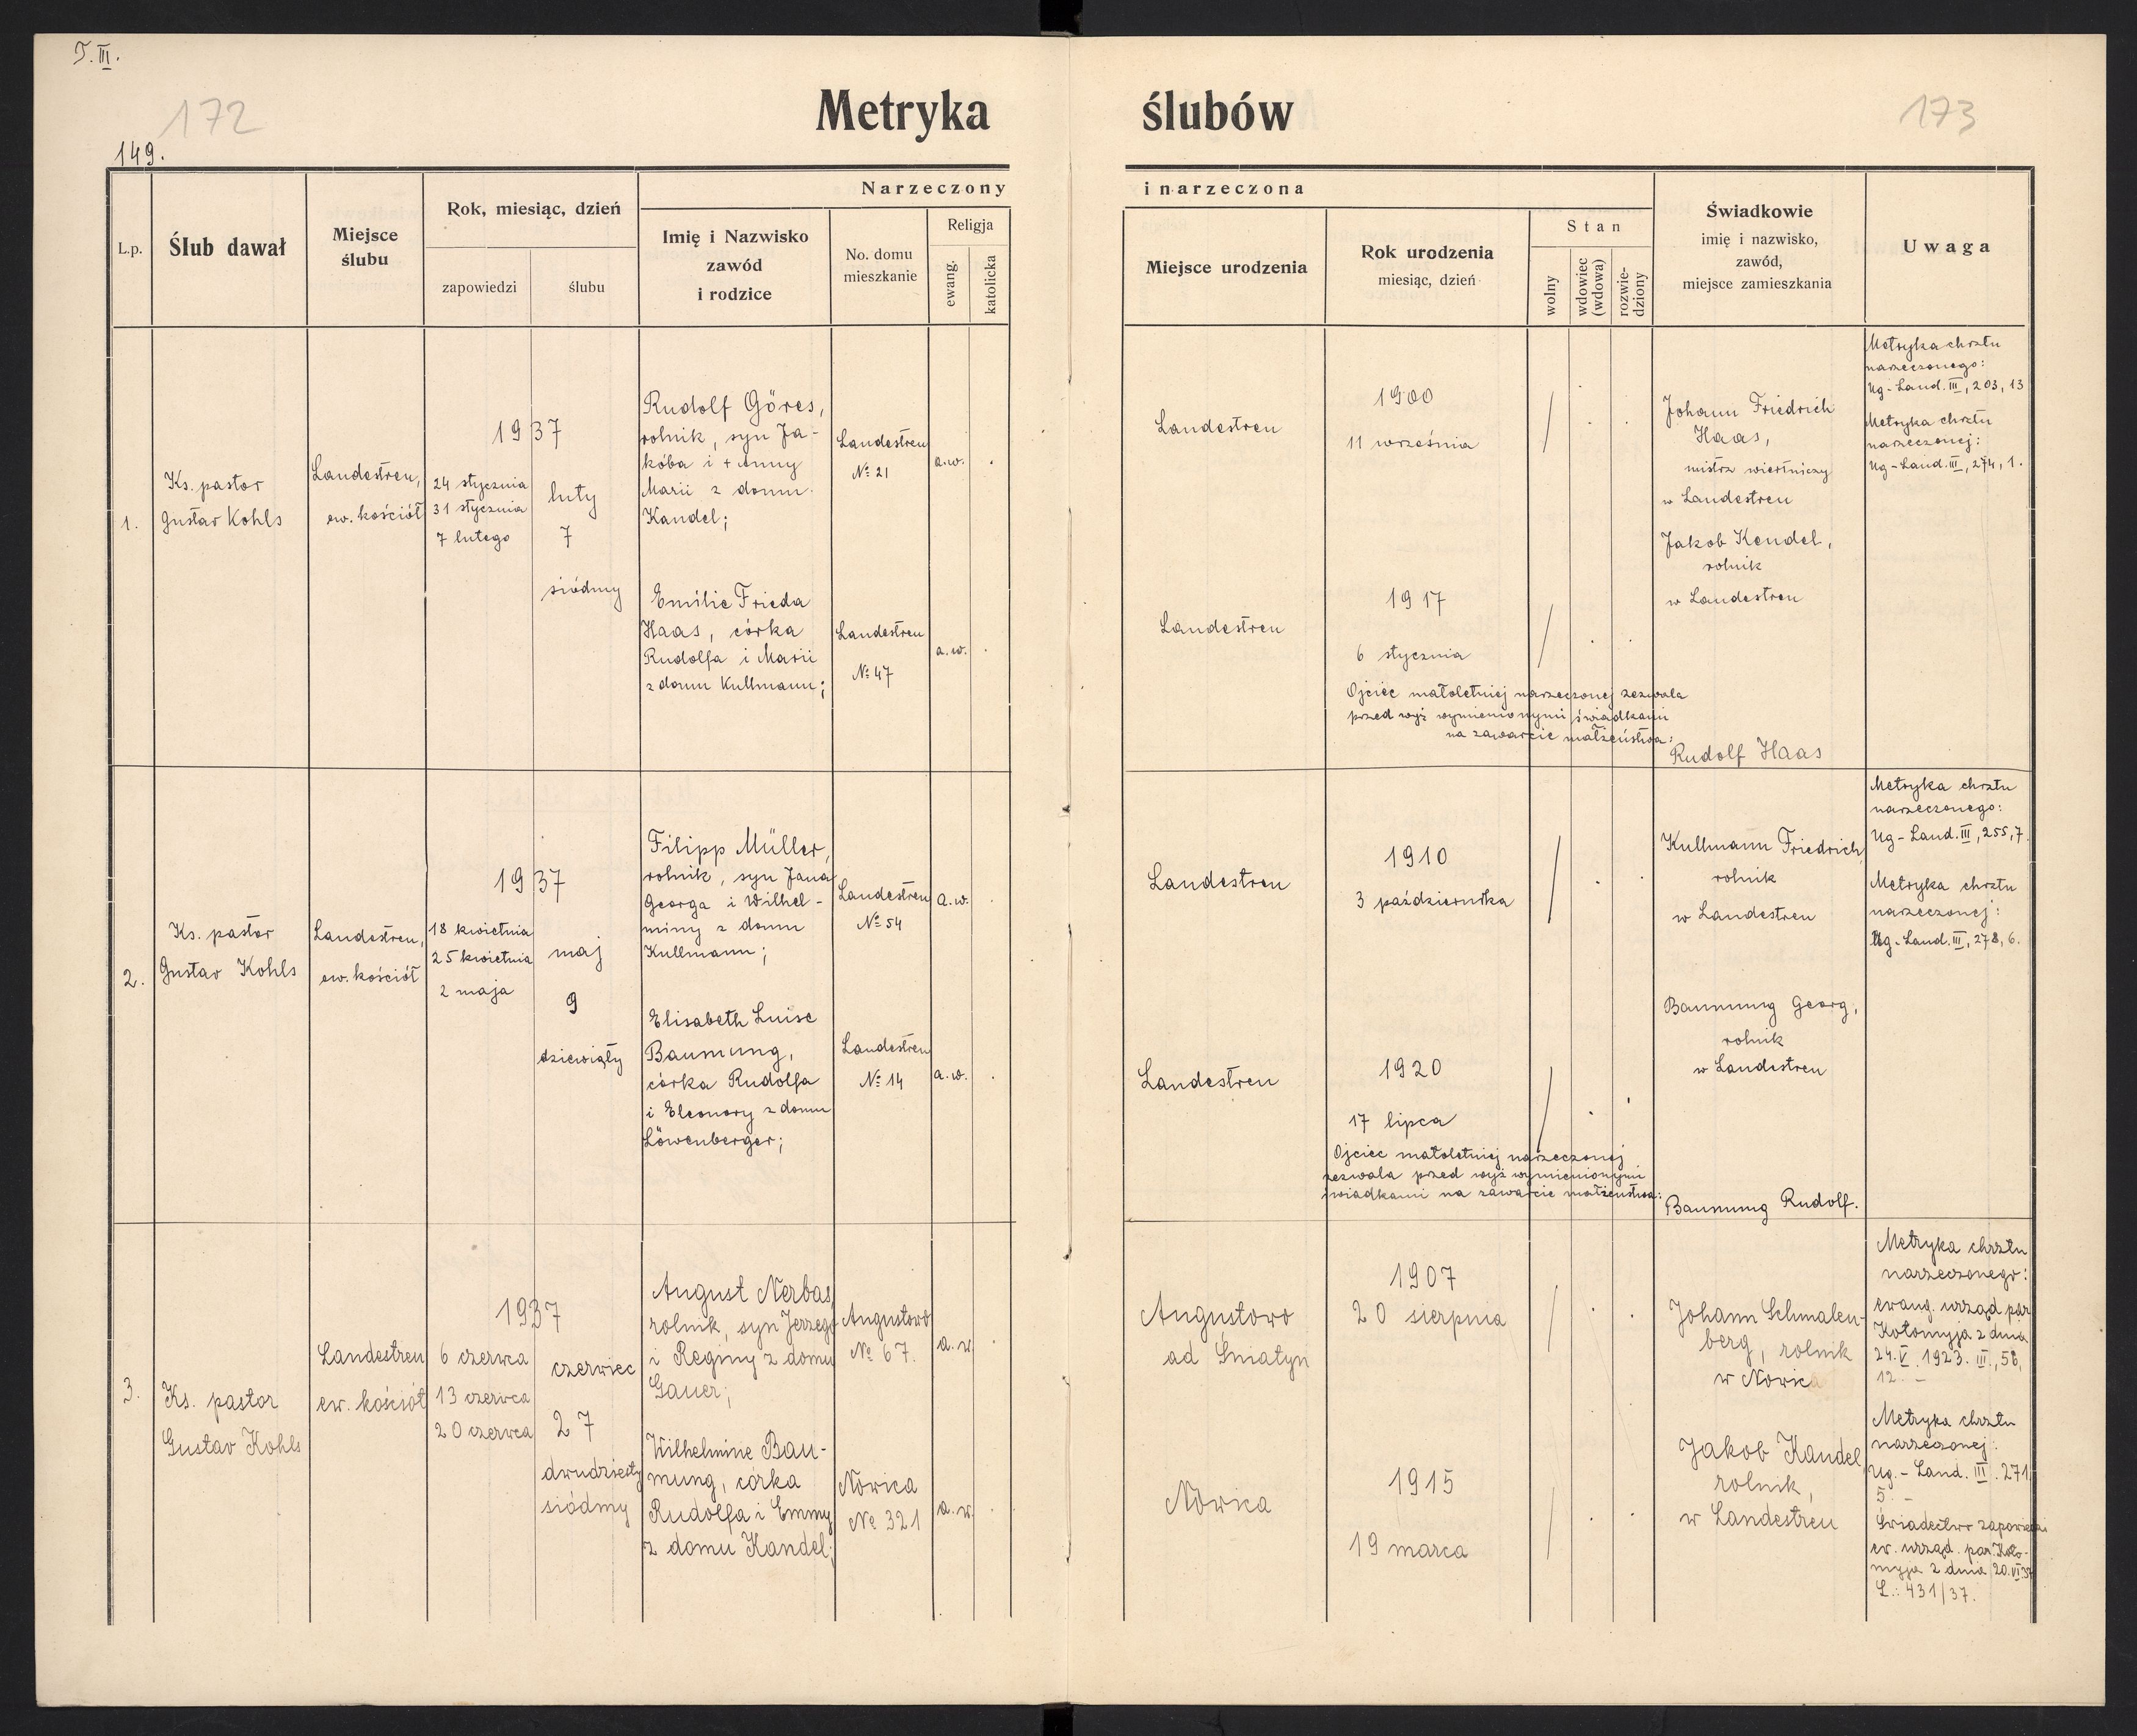 T. III.
172
149.
Metryka ślubów
173
L.p.
Ślub dawał
Miejsce
ślubu
Rok, miesiąc, dzień
zapowiedzi
ślubu
Narzeczony i narzeczona
Imię i Nazwisko
zawód
i rodzice
No. domu
mieszkanie
Religja
ewang.
katolicka
Miejsce urodzenia
Rok urodzenia
miesiąc, dzień
Stan
wolny
wdowiec
(wdowa)
rozwie-
dziony
Świadkowie
imię i nazwisko,
zawód,
miejsce zamieszkania
Uwaga
1.
Ks. pastor
Gustav Kohls
Landestreu,
ew. kościół
1937
24 stycznia
31 stycznia
7 lutego
luty
7
siódmy
Rudolf Göres,
rolnik, syn Ja-
koba i + Anny
Marii z domu
Kandel;
Landestreu
№ 21
a.w.
Emilie Frieda
Haas, córka
Rudolfa i Marii
z domu Kullmann;
Landestreu
№ 47
a.w.
Landestreu
1900
11 września
Landestreu
1917
6 stycznia
Ojciec małoletniej narzeczonej zezwala
przed wyż wymienionymi świadkami
na zawarcie małżeństwa:
Rudolf Haas
Johann Friedrich
Haas,
mistrz wiertniczy
w Landestreu
Jakob Kendel,
rolnik
w Landestreu
Metryka chrztu
narzeczonego:
Ug-Land. III, 203, 13
Metryka chrztu
narzeczonej:
Ug-Land. III, 274, 1.
2.
Ks. pastor
Gustav Kohls
Landestreu,
ew. kościół
1937
18 kwietnia
25 kwietnia
2 maja
maj
9
dziewiąty
Filipp Müller,
rolnik, syn Jana
Georga i Wilhel-
miny z domu
Kullmann;
Landestreu
№ 54
a.w.
Elisabeth Luise
Baumung,
córka Rudolfa
i Eleonory z domu
Löwenberger;
Landestreu
№ 14
a.w.
Landestreu
1910
3 października
Landestreu
1920
17 lipca
Ojciec małoletniej narzeczonej
zezwala przed wyż wymienionymi
świadkami na zawarcie małżeństwa:
Baumung Rudolf.
Kullmann Friedrich
rolnik
w Landestreu
Baumung Georg,
rolnik
w Landestreu
Metryka chrztu
narzeczonego:
Ug-Land. III, 255, 7.
Metryka chrztu
narzeczonej:
Ug-Land. III, 278, 6.
3.
Ks. pastor
Gustav Kohls
Landestreu
ew. kościół
1937
6 czerwca
13 czerwca
20 czerwca
czerwiec
27
dwudziesty
siódmy
August Nerbas,
rolnik, syn Jerzego
i Reginy z domu
Gauer;
Augustowo
№ 67.
a.w.
Wilhelmine Bau-
mung, córka
Rudolfa i Emmy
z domu Kandel;
Nowica
№ 321
a.w.
Augustowo
ad Śniatyn
1907
20 sierpnia
Nowica
1915
19 marca
Johann Schmalen-
berg, rolnik
w Nowica
Jakob Kandel,
rolnik,
w Landestreu
Metryka chrztu
narzeczonego:
ewang. urząd par
Kołomyja z dnia
24. V. 1923. III., 58,
12. –
Metryka chrztu
narzeczonej:
Ug.-Land. III. 271,
5. –
Świadectwo zapowiedzi
ew. urząd. par. Koło-
myja z dnia 20. VI. 37
L.: 431/37.